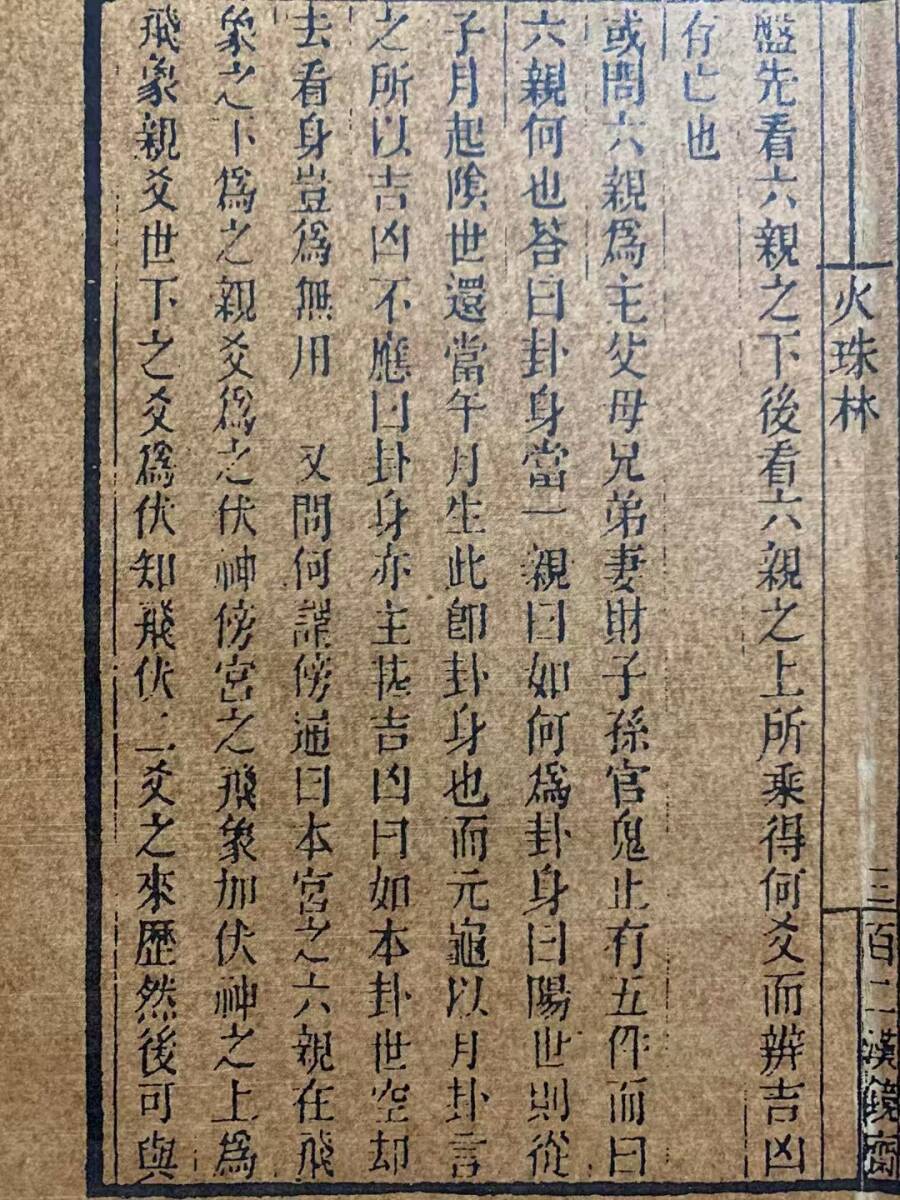 火珠林
三
百二漢鏡齋
盤先看六親之下後看六親之上所乘得何爻而辨吉凶
存亡也
或問六親爲主父母兄弟妻財子孫官鬼止有五件而曰
六親何也荅曰卦身當一親曰如何爲卦身曰陽世則從
子月起陰世還當午月生此卽卦身也而元龜以月卦言
之所以吉凶不應曰卦身亦主甚吉凶曰如本卦世空却
去看身豈爲無用　又問何謂傍通曰本宮之六親在飛
象之下爲之親爻爲之伏神傍宮之飛象加伏神之上爲
飛象親爻世下之爻爲伏知飛伏二爻之來歷然後可與